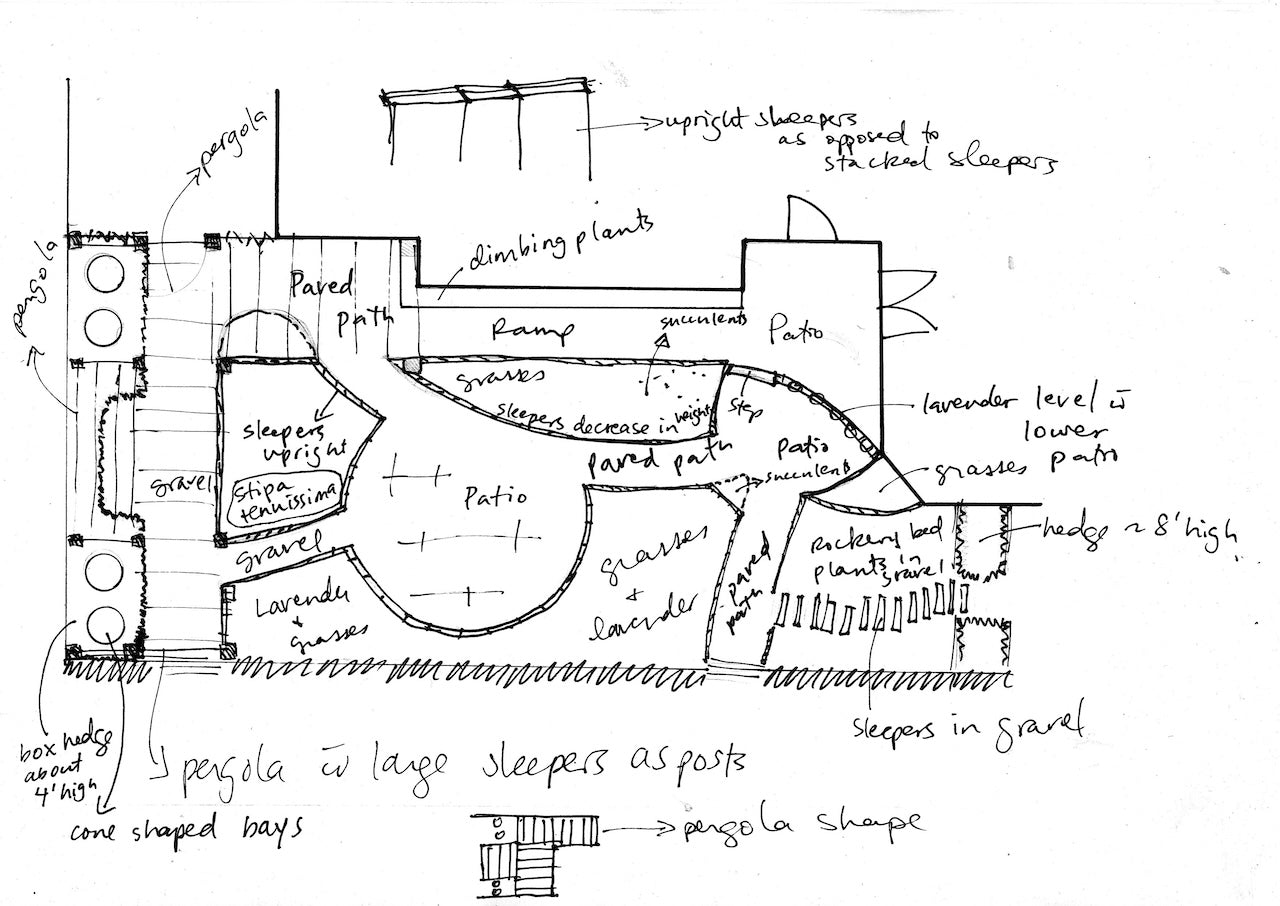 pergola
→upright sleepers
as opposed to
stacked sleepers
pergola
climbing plants
Paved
path
Ramp
succulents
Patio
grasses
sleepers decrease in height
step
lavender level w̄
lower
patio
grasses
sleepers
upright
Paved path
Patio
succulents
gravel
stipa
tenuissima
Patio
hedge ~ 8' high
gravel
grasses
+
lavender
paved
path
Rockery bed
plants in
gravel
Lavender
+ grasses
sleepers in gravel
box hedge
about
4' high
pergola w̄ large sleepers as posts
cone shaped bays
→pergola shape